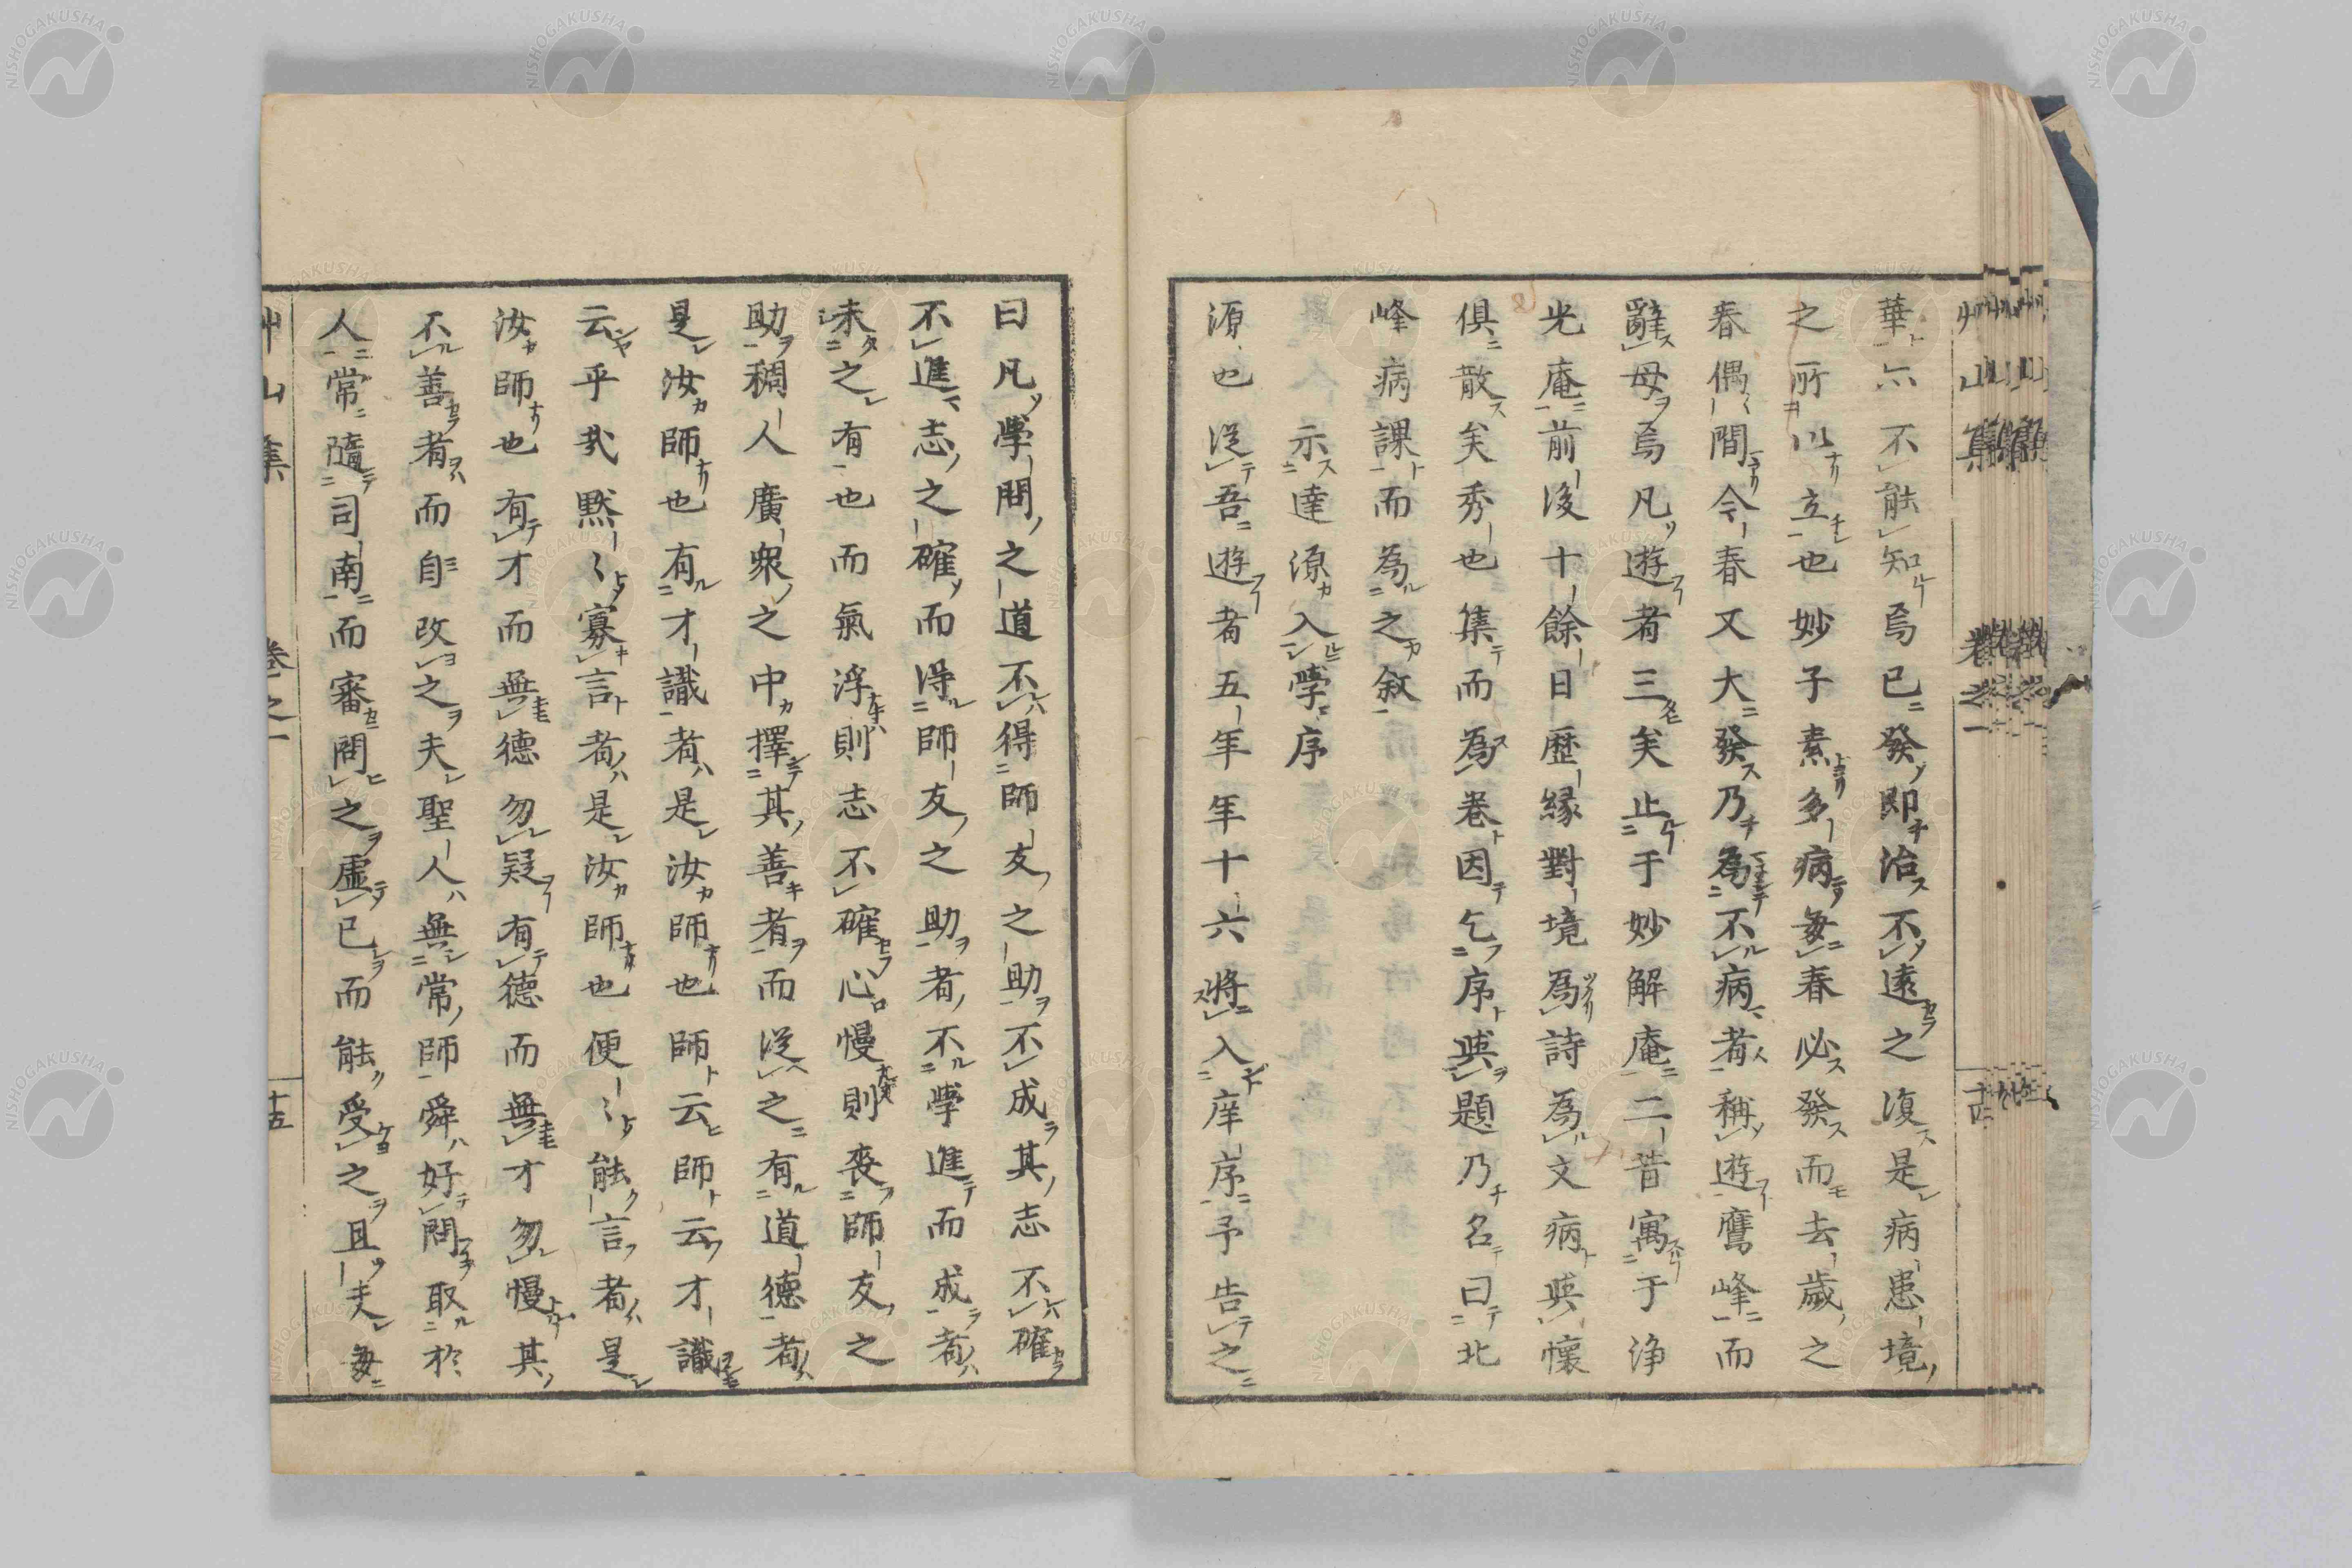 華亦不能知焉已發即治不遠之復是病患境
之所以立也妙子素多病每春必發而去歲之
春偶間今春又大發乃為不病者稱遊鷹峰而
辭母焉凡遊者三矣止于妙解庵二昔寓于浄
光庵前後十餘日歷緣對境為詩為文病與懷
俱散矣秀也集而為卷因乞序與題乃名曰北
峰病課而為之敘
示達源入學序
源也從吾遊者五年年十六將入庠序予告之
曰凡學問之道不得師友之助不成其志不確
不進志之確而得師友之助者不學進而成者
未之有也而氣浮則志不確心慢則喪師友之
助稠人廣衆之中擇其善者而從之有道德者
是汝師也有才識者是汝師也師云師云才識
云乎哉黙〻寡言者是汝師也便〻能言者是
汝師也有才而無德勿疑有德而無才勿慢其
不善者而自改之夫聖人無常師舜好問取於
人常隨司南而審問之虛已而能受之且夫每
艸山集 卷之一 十五